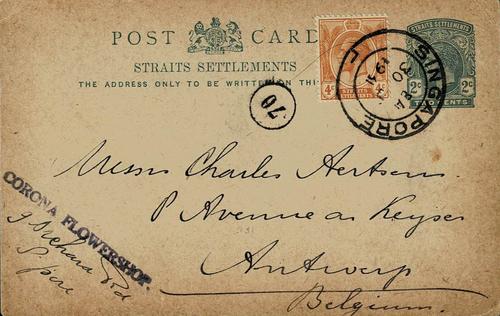 POST CARD
STRAITS SETTLEMENTS
THE ADDRESS ONLY TO BE WRITTEN ON THI
4c 4c
STRAITS SETTLEMENTS
STRAITS SETTLEMENTS
2c 2c
TWO CENTS
SINGAPORE
70
Messrs Charles Aertsen
Avenue de Keyser
Antwerp
Belgium.
CORONA FLOWERSHOP.
Orchard Rd
S'pore